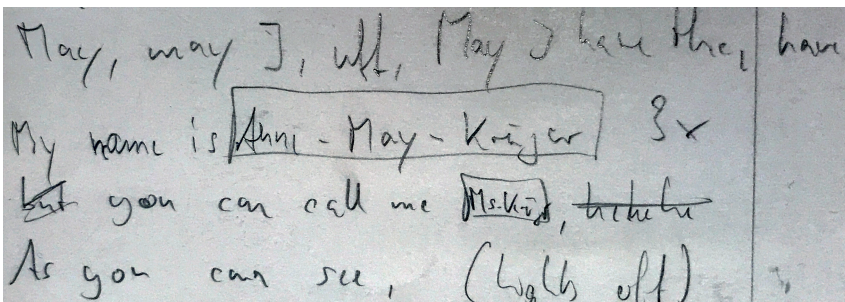 May, may I, uff, May I have the, have
My name is Anni - May - Krüger 3x
but you can call me Ms. Krüg, hehehe
As you can see, (walks off)